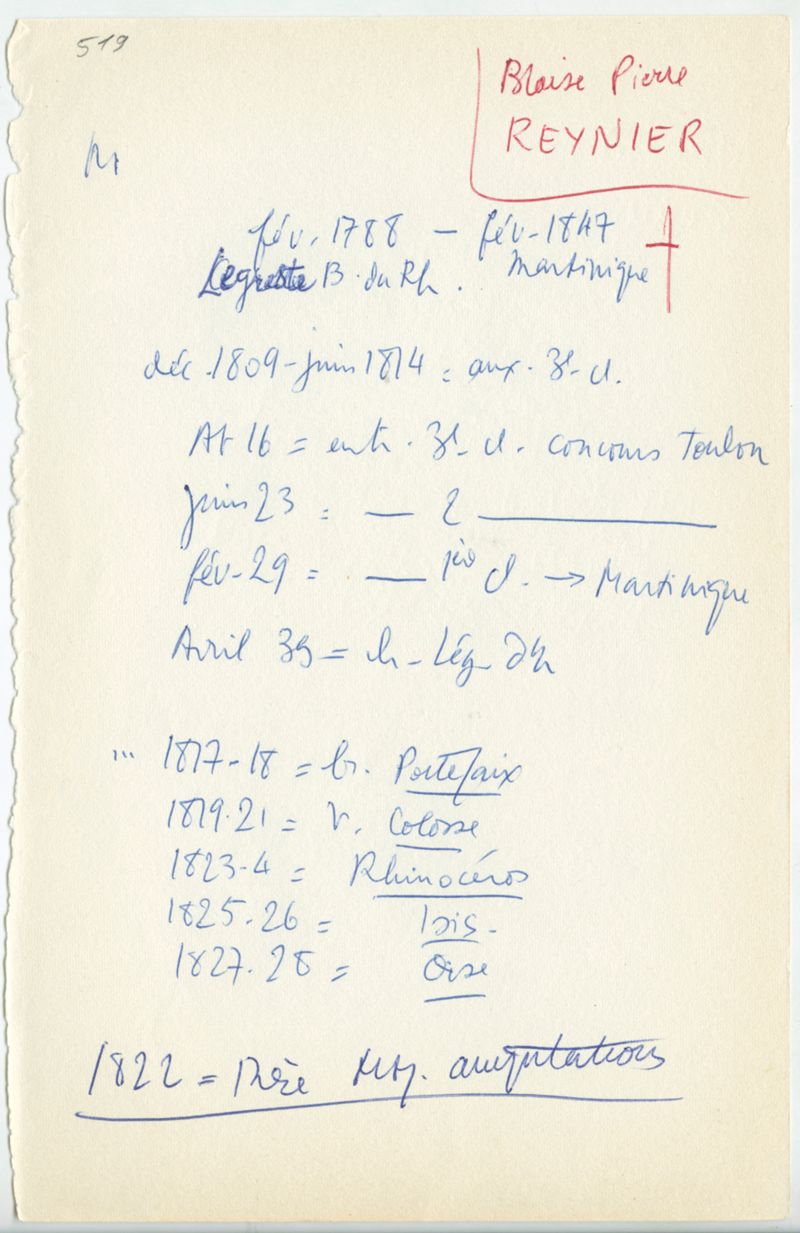 519
Blaise Pierre
REYNIER
M
fév. 1788 - fév. 1847
B. du Rh. Martinique
déc. 1809 - juin 1814 = aux. 3e cl.
At 16 = entr. 3e cl. concours Toulon
Juin 23 = — 2 —
fév. 29 = — 1ère cl. → Martinique
Avril 39 = ch. Lég. d'h
... 1817-18 = br. Portefaix
1819.21 = V. Colosse
1823-4 = Rhinocéros
1825.26 = Isis.
1827.28 = Oise
1822 = Thèse Mtp. amputations